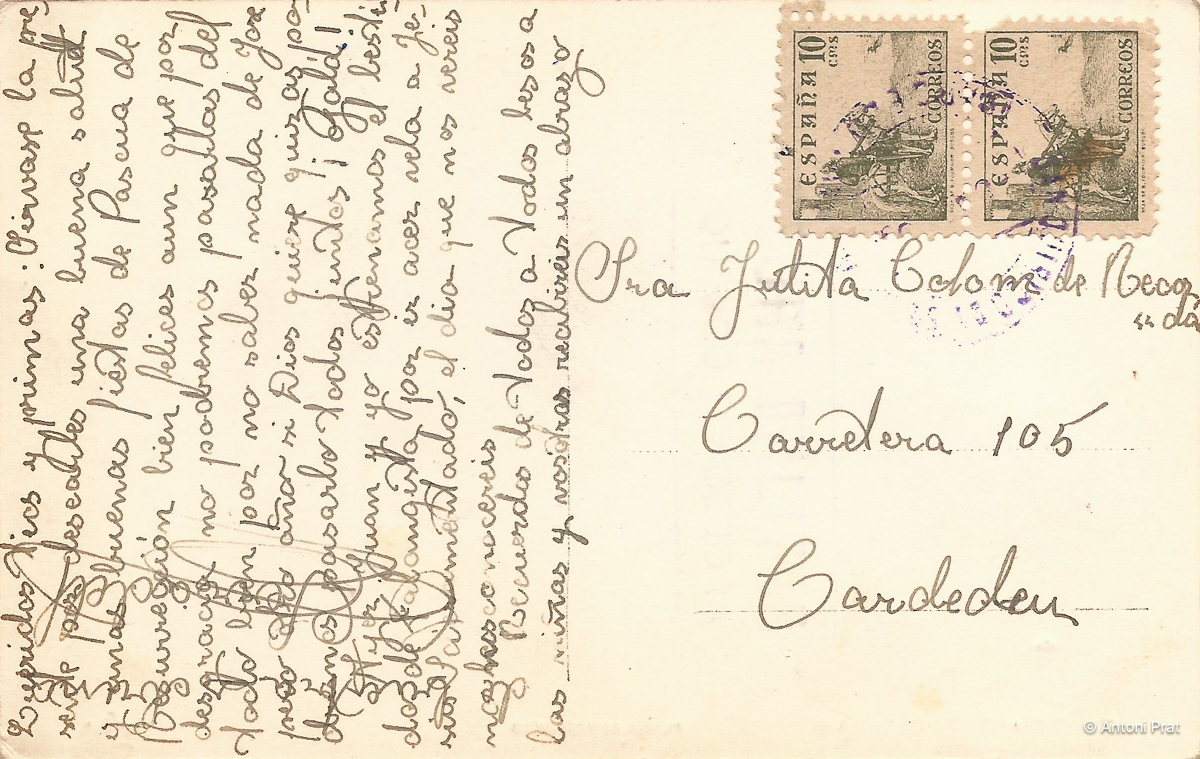 Queridos tios y primas: Sirvase la pre
sente para desearles una buena salud
y unas buenas fiestas de Pascua de
Resurreción bien felices aun que por
desgracia no podremos pasarlas del
todo bien por no saber nada de Jose
pero otro año si Dios quiere quizas po
dremos pasarlo todos juntos ¡Ojalá!
Ayer Juan y yo estrenamos el vesti
do de Falangista por ir acer vela a Je
sus Sacramentado, el dia que nos vereis
no nos conocereis
Recuerdos de todos a todos besos a
las niñas y vosotras recibireis un abrazo
ESPAÑA 10 cms
CORREOS
ESPAÑA 10 cms
CORREOS
Sra Julita Colom de Recor
" da
Carretera 105
Cardedeu
© Antoni Prat